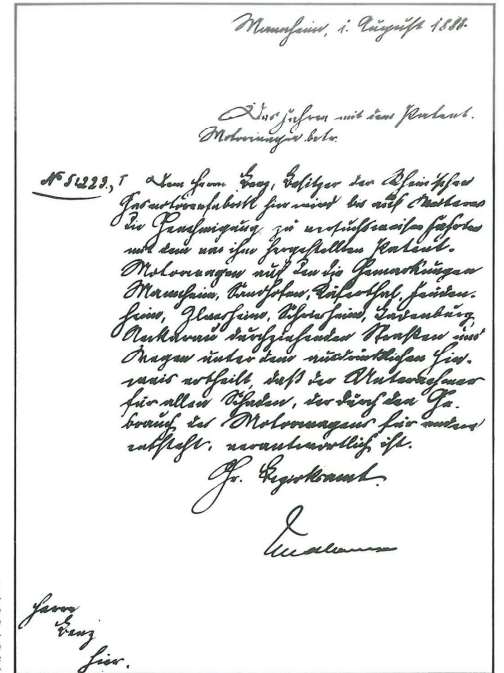 Mannheim, 1. August 1888.
Das Fahren mit dem Patent-
Motorwagen betr.
No 51229, I Dem Herrn Benz, Besitzer der Rheinischen
Gasmotorenfabrik hier wird bis auf Weiteres
die Genehmigung zu versuchsweisen Fahrten
mit dem von ihm hergestellten Patent-
Motorwagen auf den die Gemarkungen
Mannheim, Sandhofen, Käferthal, Feuden-
heim, Ilvesheim, Schriesheim, Ladenburg,
Neckarau durchziehenden Straßen und
Wegen unter dem ausdrücklichen Hin-
weis ertheilt, daß der Unternehmer
für allen Schaden, der durch den Ge-
brauch des Motorwagens für andere
entsteht, verantwortlich ist.
Gr. Bezirksamt.
Herrn
Benz
hier.